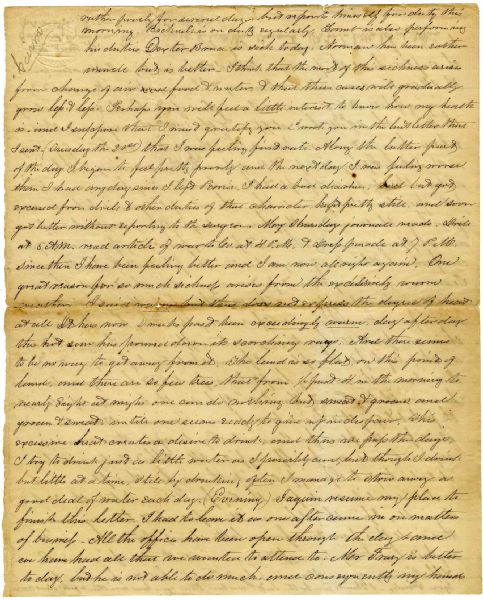 rather poorly for several days but reports himself for duty this
morning. is on duty regularly. is also performing
his duties Doctor is sick today. has been rather
but is better. I think that the most of the sickness arises
from change of air food & water & that these cases will gradually
grow less & less. Perhaps you will feel a little interest to know how my health
is and I suppose that I must gratify you I wrote you in the last letter that
I sent, Tuesday the that I was feeling first rate. Along the latter part
of the day I began to feel pretty poorly and the next day I was feeling worse
than I had any day since I left I had a bad but got
excused from drill & other duties of that character kept pretty still and soon
got better without reporting to the surgeon. Thursday
at 5 A.M. read articles of war to Co. at 4 P.M. & Dress Parade at 7 P.M.
Since then I have been feeling better and I am now all right again. One
great reason for so much sickness arises from the excessively warm
weather. I said warm but that does not express the degree of heat
at all It has now 2 weeks past been exceedingly warm, day after day
the hot sun has poured down its scorching rays. And there seems
to be no way to get away from it. The land is so flat on this point of
land, and there are so few trees, that from past in the morning to
nearly night one can do nothing but sweat & groan and
groan & sweat until one seems ready to give up in despair. This
excessive heat creates a desire to drink and thus we pass the days.
I try to drink just as little water as I possibly can, but though I drink
but little at a time, still by drinking often I manage to stow away a
good deal of water each day. (Evening) I again resume my place to
finish this letter. I had to leave it as one after came in on matters
of business. All the offices have been open through the day & once
have had all that we wanted to attend to. Mr is better
to day, but he is not able to do much, and consequently my